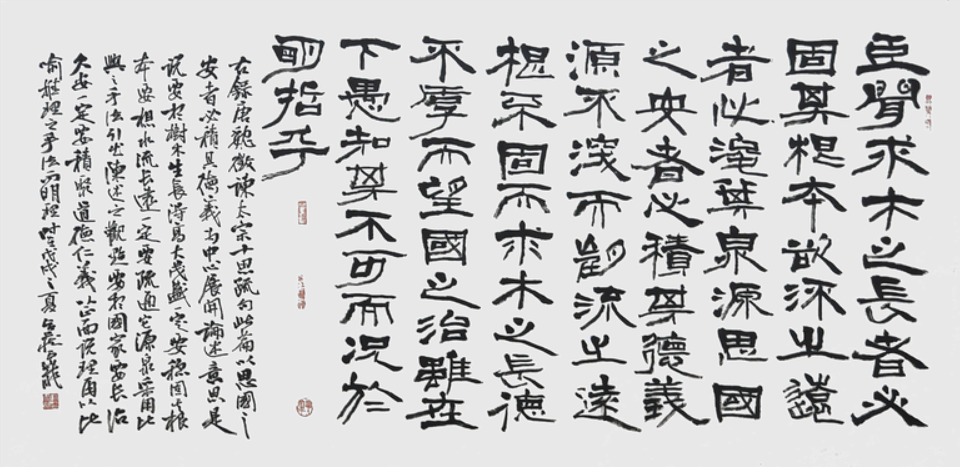 臣聞求木之長者必
固其根本欲流之遠
者必浚其泉源思國
之安者必積其德義
源不深而望流之遠
根不固而求木之長德
不厚而望國之治雖在
下愚知其不可而況於
明哲乎
右錄唐魏徵諫太宗十思疏句此篇以思國之
安者必積其德義為中心展開論述意思是
說要於樹木生長得高大茂盛一定要穩固其根
本要想水流長遠一定要疏通它源泉采用比
興之手法引出陳述之觀點要想國家要長治
久安一定要積聚道德仁義從正面說理用以比
喻推理之手法而明理時在戊戌之夏